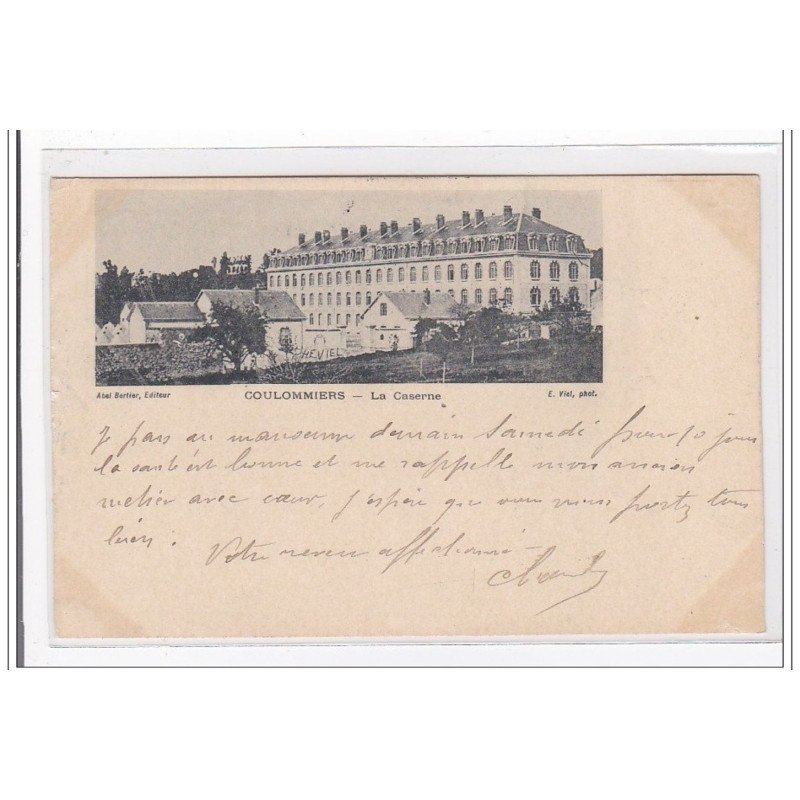 CHEVIEL
Abel Bertier, Editeur
COULOMMIERS — La Caserne
E. Viel, phot.
Je pars en manoeuvre demain Samedi pour 10 jours
la santé est bonne et me rappelle mon ancien
métier avec cœur, j'espère que vous vous portez tous
bien.
Votre neveu affectionné